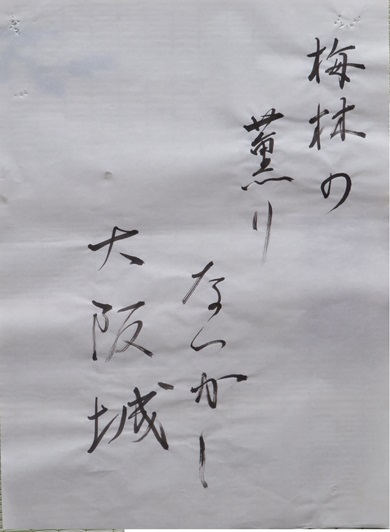 梅林の
薫り
なつかし
大阪城